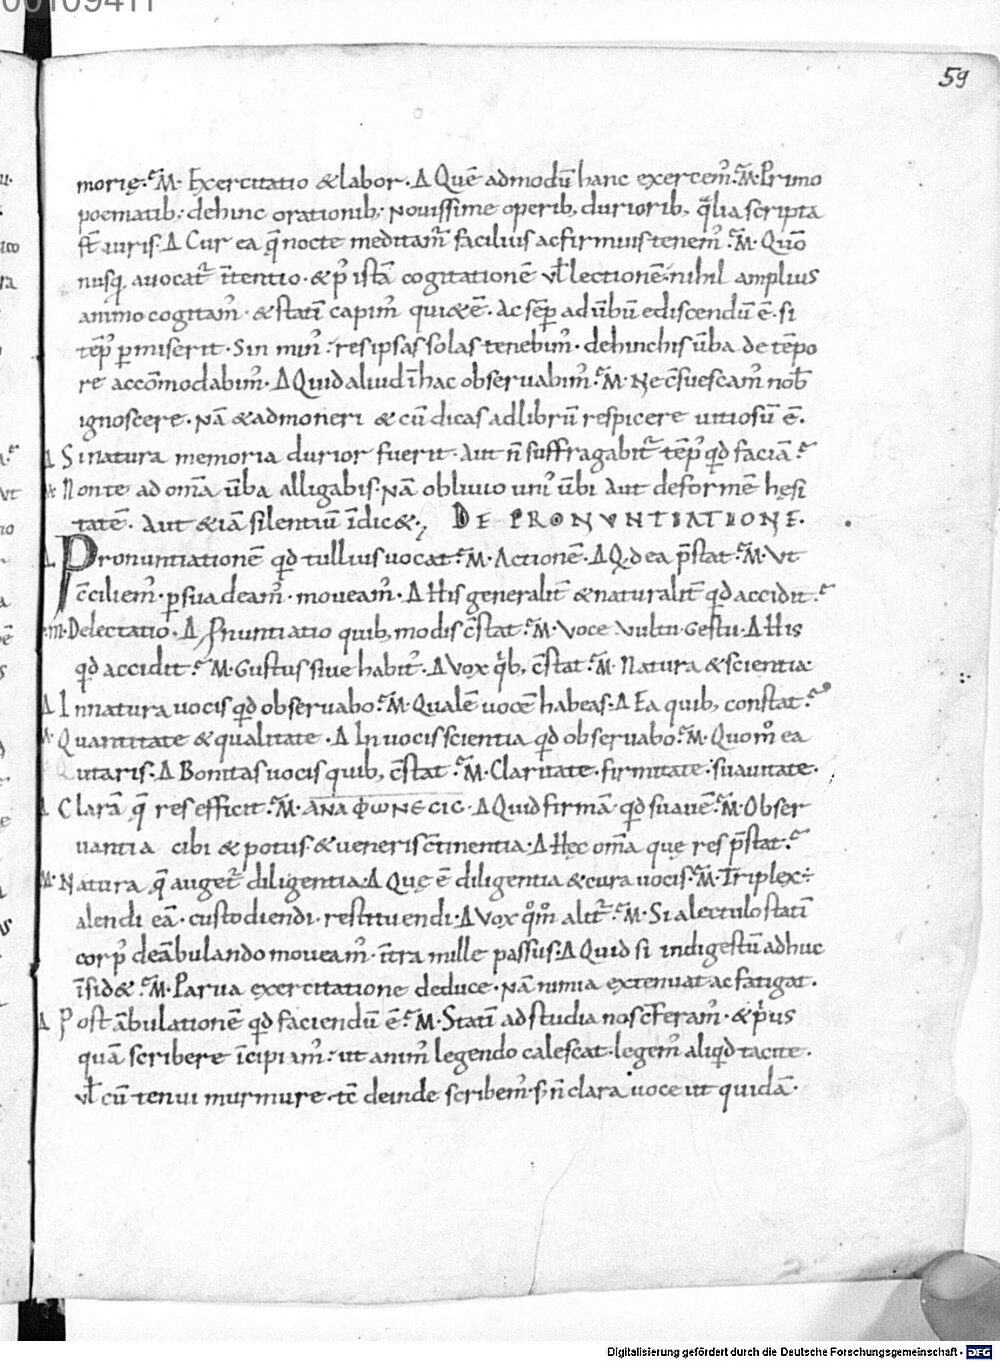 00109411
59
morię.᷎ M· Exercitatio &labor·Δ Quē admodū hanc exercem᷒. M·Primo
poematib; dehinc orationib; Novissime operib, duriorib, q̄lia scripta
st̄ iuris·Δ Cur ea q̄ nocte meditam̄ facilius acfirmius tenem᷒. M· Quō
nusq̄ avocat᷒ īntentio·&p᷒ istā cogitationē vł lectionē·nihil amplius
animo cogitam᷒·&statī capim᷒ qui&ē·Ac sēp ad ūbū ediscendū ē·si
tēp᷒ p̱miserit·Sin min᷒: res ipsas solas tenebim᷒·dehinc his ūba de tēpo
re accōmodabim᷒·Δ Quid aliud ī hac observabim᷒. M·Ne c̄suescam᷒ nob̄
ignoscere·Nā &admoneri &cū dicas ad librū respicere vitiosū ē·
Δ Si natura memoria durior fuerit·Aut n̄ suffragabit᷒ tēp᷒ qđ faciā.
M Non te ad om̄a ūba alligabis·Nā oblivio uni᷒ ūbi Aut deformē hęsi
tatē·Aut &iā silentiū īdic&·, DE PRONVNTIATIONE·
Δ Pronuntiationē qđ tullius vocat. M·Actionē·Δ Q·d ea p̄stat. M·Vt
c̄ciliem᷒·p̱suadeam᷒·moveam᷒·Δ His generalit̄ &naturalit̄ qđ accidit.
·m·Delectatio·Δ Pnuntiatio quib, modis c̄stat. M·Voce vultu gestu·Δ His
qđ accidit. M·Gustus sive habit᷒·Δ Vox q̄b, c̄stat. M·Natura &scientia·
Δ In natura vocis qđ observabo. M·Qualē vocē habeas·Δ Ea quib, constat.
M·Quantitate &qualitate·Δ In vocis scientia qđ observabo. M·Quom̊ ea
utaris·Δ Bonitas vocis quib, c̄stat. M·Claritate·firmitate·suavitate·
Δ Clarā q̄ res efficit. M·ΑΝΑΦΩΝΕCΙC·Δ Quid firmā·qđ suavē. M·Obser
vantia cibi &potus·&veneris c̄tinentia·Δ Hęc om̄a quę res p̄stat.
M·Natura q̄ auget᷒ diligentia·Δ Quę ē diligentia &cura vocis. M·Triplex÷
alendi eā·custodiendi·restituendi·Δ Vox q̊m̊ alit᷒. M·Si a lectulo statī
corp᷒ deābulando moveam᷒·īntra mille passus·Δ Quid si indigestū adhuc
īsid&. M·Parva exercitatione deduce·Nā nimia extenuat ac fatigat·
Δ Post ābulationē qđ faciendū ē. M·Statī ad studia nos c̄feram᷒·&p̄us
quā scribere īcipiam᷒: ut anim᷒ legendo calescat·legem᷒ aliqđ tacite·
vł cū tenui murmure·tc̄ deinde scribem᷒·s; n̄ clara voce ut quidā·
Digitalisierung gefördert durch die Deutsche Forschungsgemeinschaft - DFG